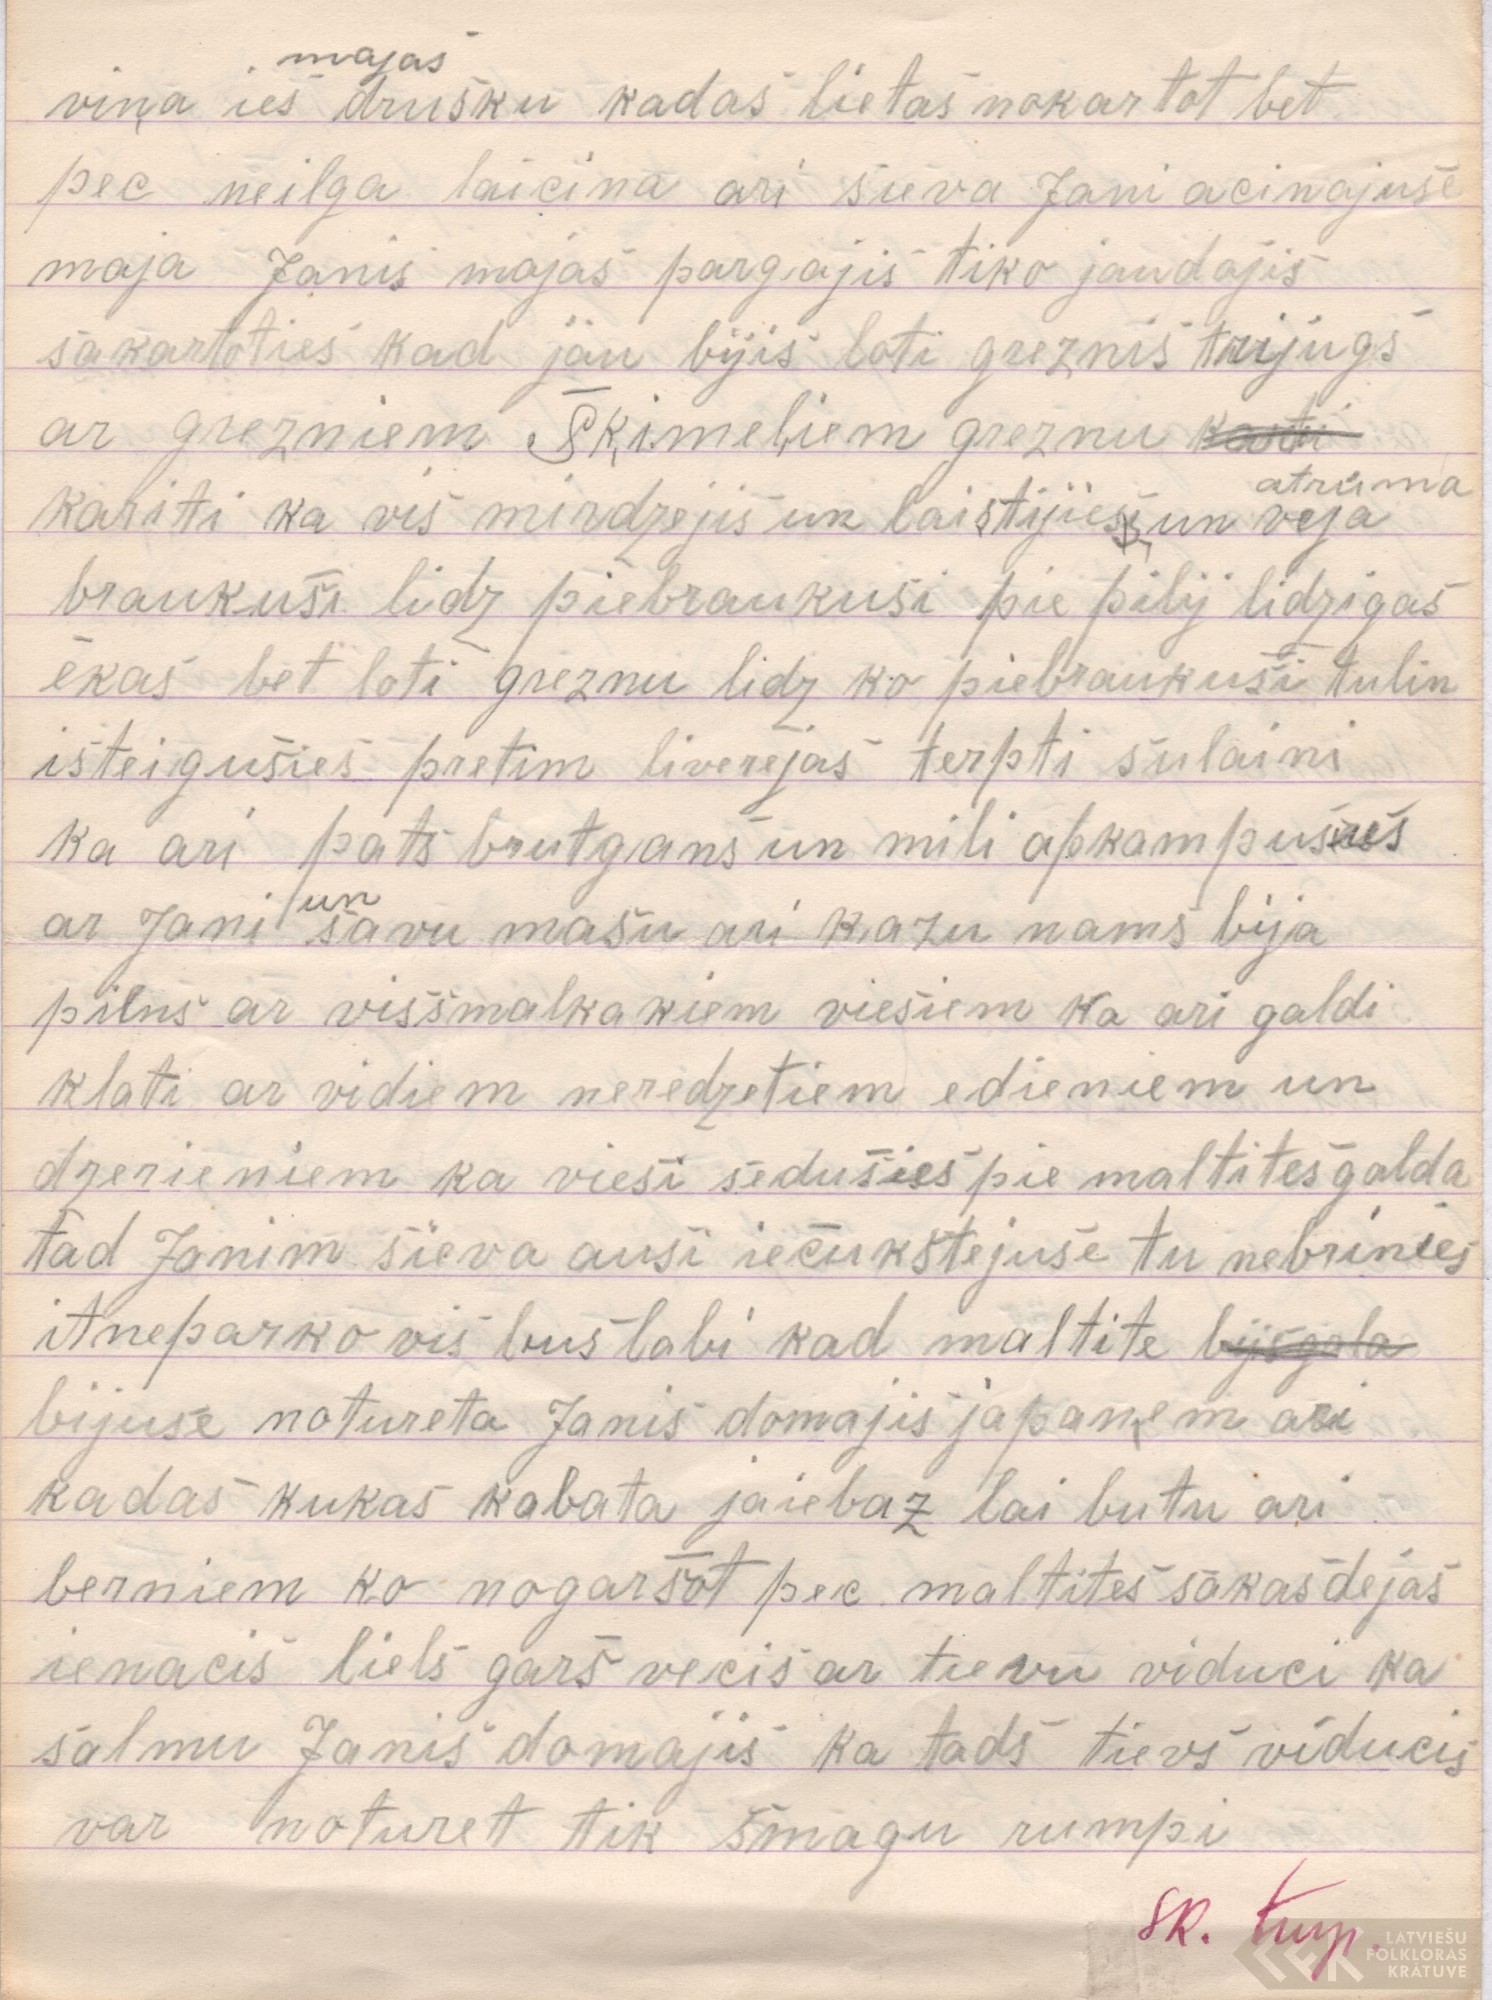 majas
viņa ies drusku kadas lietas nokartot bet
pec neilga laicina ari sieva Jani acinajuse
maja Janis majas pargajis tiko jaudajis
sakartoties kad jau bijis loti greznis trijugs
ar grezniem Šķimeļiem greznu kasti
atruma
kariti ka vis mirdzejis un laistijies un veja
braukuši lidz piebraukusi pie pilij lidzigas
ēkas bet loti greznu lidz ko piebraukuši tulin
isteigušies pretim liverejas terpti sulaini
ka ari pats brutgans un mili apkampusies
un
ar Jani savu mašu ari kazu nams bija
pilns ar vissmalkakiem viesiem ka ari galdi
klati ar vidiem neredzetiem edieniem un
dzerieniem ka viesi sedušies pie maltites galda
tad Janim sieva ausi iečukstejuse tu nebrinies
itneparko vis bus labi kad maltite bijis gala
bijuse notureta Janis domajis japaņem ari
kadas kukas kabata jaiebaz lai butu ari
berniem ko nogaršot pec maltites sakas dejas
ienacis liels garš vecis ar tievu viduci ka
salmu Janis domajis ka tads tievs viducis
var noturet tik smagu rumpi
sk. turp.
LATVIEŠU
FOLKLORAS
KRĀTUVE